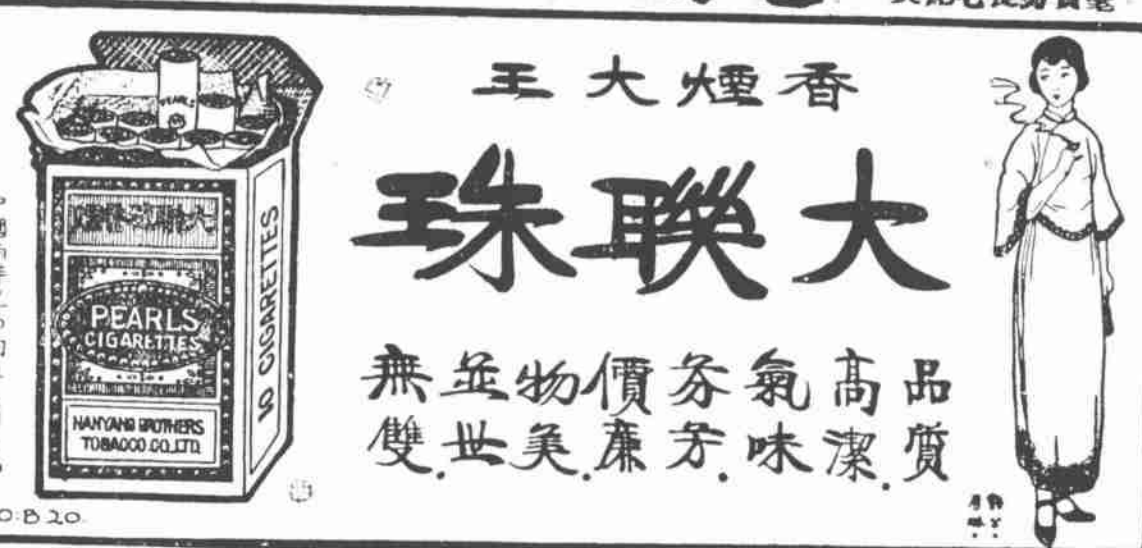 香煙大王
大聯珠
品質高潔.
氣味芬芳.
價廉物美.
並世無雙.
PEARLS
PEARLS
CIGARETTES
NANYANG BROTHERS
TOBACCO CO. LTD.
10 CIGARETTES